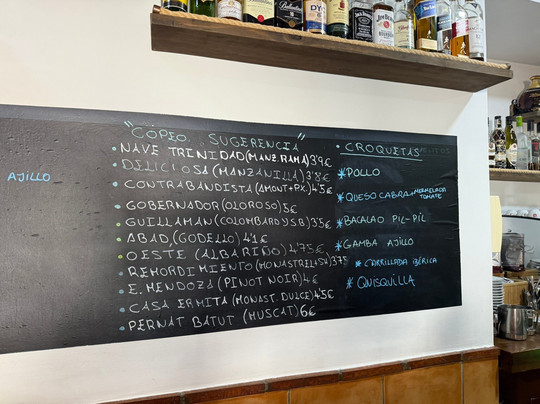 AJILLO
"CÓPEO SUGERENCIA"
• NAVE TRINIDAD (MANZ. RAMA) 3'9€
• DELICIOSA (MANZANILLA) 3'8€
• CONTRABANDISTA (AMONT+P.X.) 4'5€
• GOBERNADOR (OLOROSO) 5€
• GUILLAMAN (COLOMBARD Y S.B) 3'5€
• ABAD, (GODELLO) 4'1€
• O ESTE (ALBARIÑO) 4'75€
• REMORDIMIENTO (MONASTRELL+SY) 3'75
• E. MENDOZA (PINOT NOIR) 4€
• CASA ERMITA (MONAST. DULCE) 4'5€
• PERNAT BATUT (MUSCAT) 6€
• CROQUETAS
* POLLO
* QUESO CABRA + MERMELADA TOMATE
* BACALAO PIL-PIL
* GAMBA AJILLO
* CARRILLADA IBÉRICA
* QUISQUILLA